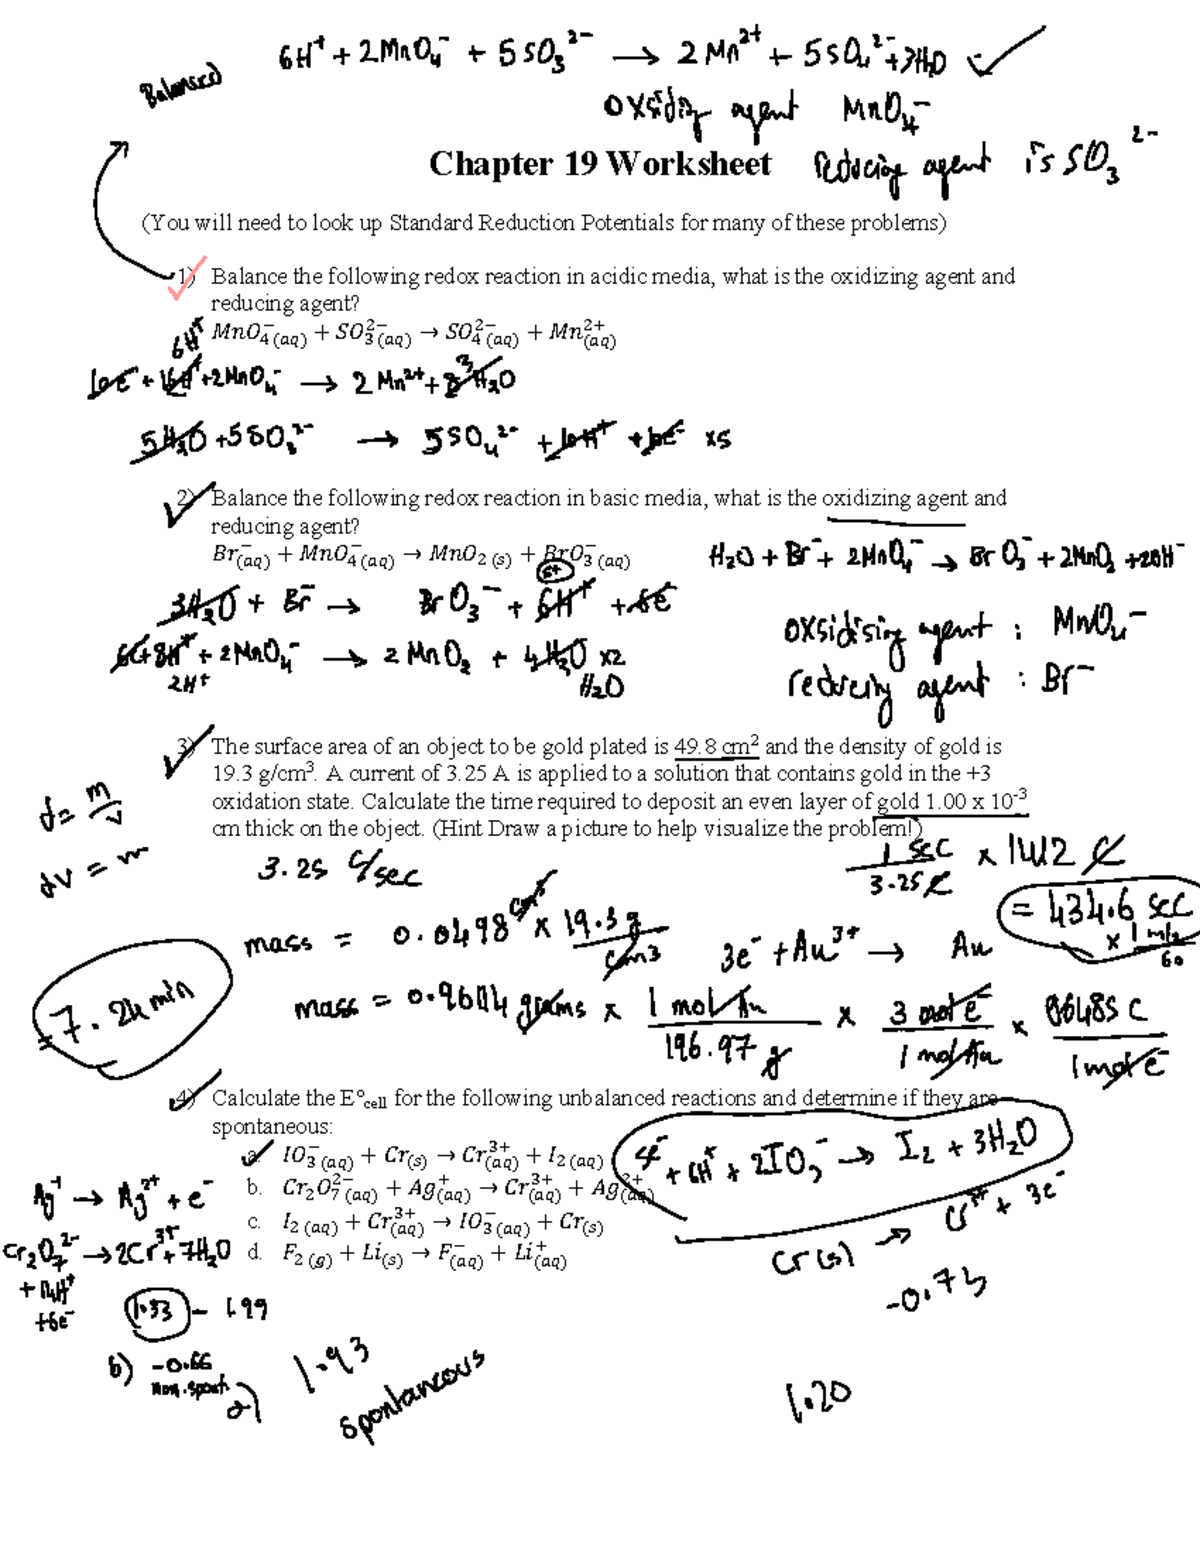 6H⁺ + 2MnO₄⁻ + 5SO₃²⁻ → 2Mn²⁺ + 5SO₄²⁻ + 3H₂O ✓
Balanced
oxsidizig agent MnO₄⁻
Chapter 19 Worksheet
reducing agent is SO₃²⁻
(You will need to look up Standard Reduction Potentials for many of these problems)
1) Balance the following redox reaction in acidic media, what is the oxidizing agent and
reducing agent?
MnO₄⁻(aq) + SO₃²⁻(aq) → SO₄²⁻(aq) + Mn²⁺(aq)
6H⁺
10e⁻ + 16H⁺ + 2MnO₄⁻ → 2Mn²⁺ + 8H₂O
3
5H₂O + 5SO₃²⁻ → 5SO₄²⁻ + 10H⁺ + 10e⁻ x5
2) Balance the following redox reaction in basic media, what is the oxidizing agent and
reducing agent?
Br⁻(aq) + MnO₄⁻(aq) → MnO₂ (s) + BrO₃⁻(aq)
5+
H₂O + Br⁻ + 2MnO₄⁻ → BrO₃⁻ + 2MnO₂ + 2OH⁻
3H₂O + Br⁻ → BrO₃⁻ + 6H⁺ + 6e⁻
oxsidising agent : MnO₄⁻
6e + 8H⁺ + 2MnO₄⁻ → 2MnO₂ + 4H₂O x2
2H⁺ H₂O
reducing agent : Br⁻
3) The surface area of an object to be gold plated is 49.8 cm² and the density of gold is
19.3 g/cm³. A current of 3.25 A is applied to a solution that contains gold in the +3
oxidation state. Calculate the time required to deposit an even layer of gold 1.00 x 10⁻³
cm thick on the object. (Hint Draw a picture to help visualize the problem!)
d = m/v
dv = m
3.25 C/sec
1 sec/3.25 C x 1412 C
= 434.6 sec
x 1 min/60
mass = 0.0498 cm³ x 19.3 g/cm3
3e⁻ + Au³⁺ → Au
mass = 0.96114 grams x 1 mol Au/196.97 g x 3 mol e⁻/1 mol Au x 96485 C/1 mol e⁻
= 7.24 min
4) Calculate the E°cell for the following unbalanced reactions and determine if they are
spontaneous:
a. IO₃⁻(aq) + Cr(s) → Cr³⁺(aq) + I₂ (aq)
b. Cr₂O₇²⁻(aq) + Ag⁺(aq) → Cr³⁺(aq) + Ag²⁺(aq)
c. I₂ (aq) + Cr³⁺(aq) → IO₃⁻(aq) + Cr(s)
d. F₂ (g) + Li(s) → F⁻(aq) + Li⁺(aq)
+ 6H⁺ + 2IO₃⁻ → I₂ + 3H₂O
Cr(s) → Cr³⁺ + 3e⁻
-0.73
Ag⁺ → Ag²⁺ + e⁻
Cr₂O₇²⁻ → 2Cr³⁺ + 7H₂O
+ 14H⁺
+6e⁻
1.33 - 1.99
b) -0.66
non-spont
a) 1.93
spontaneous
1.20